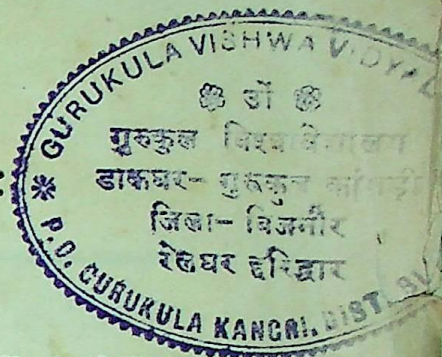 * GURUKULA VISHWA VIDYAL
ओं
गुरुकुल विश्वविद्यालय
डाकघर- गुरुकुल कांगड़ी
जिला- बिजनौर
रेलघर हरिद्वार
P.O. GURUKULA KANGRI, DIST.